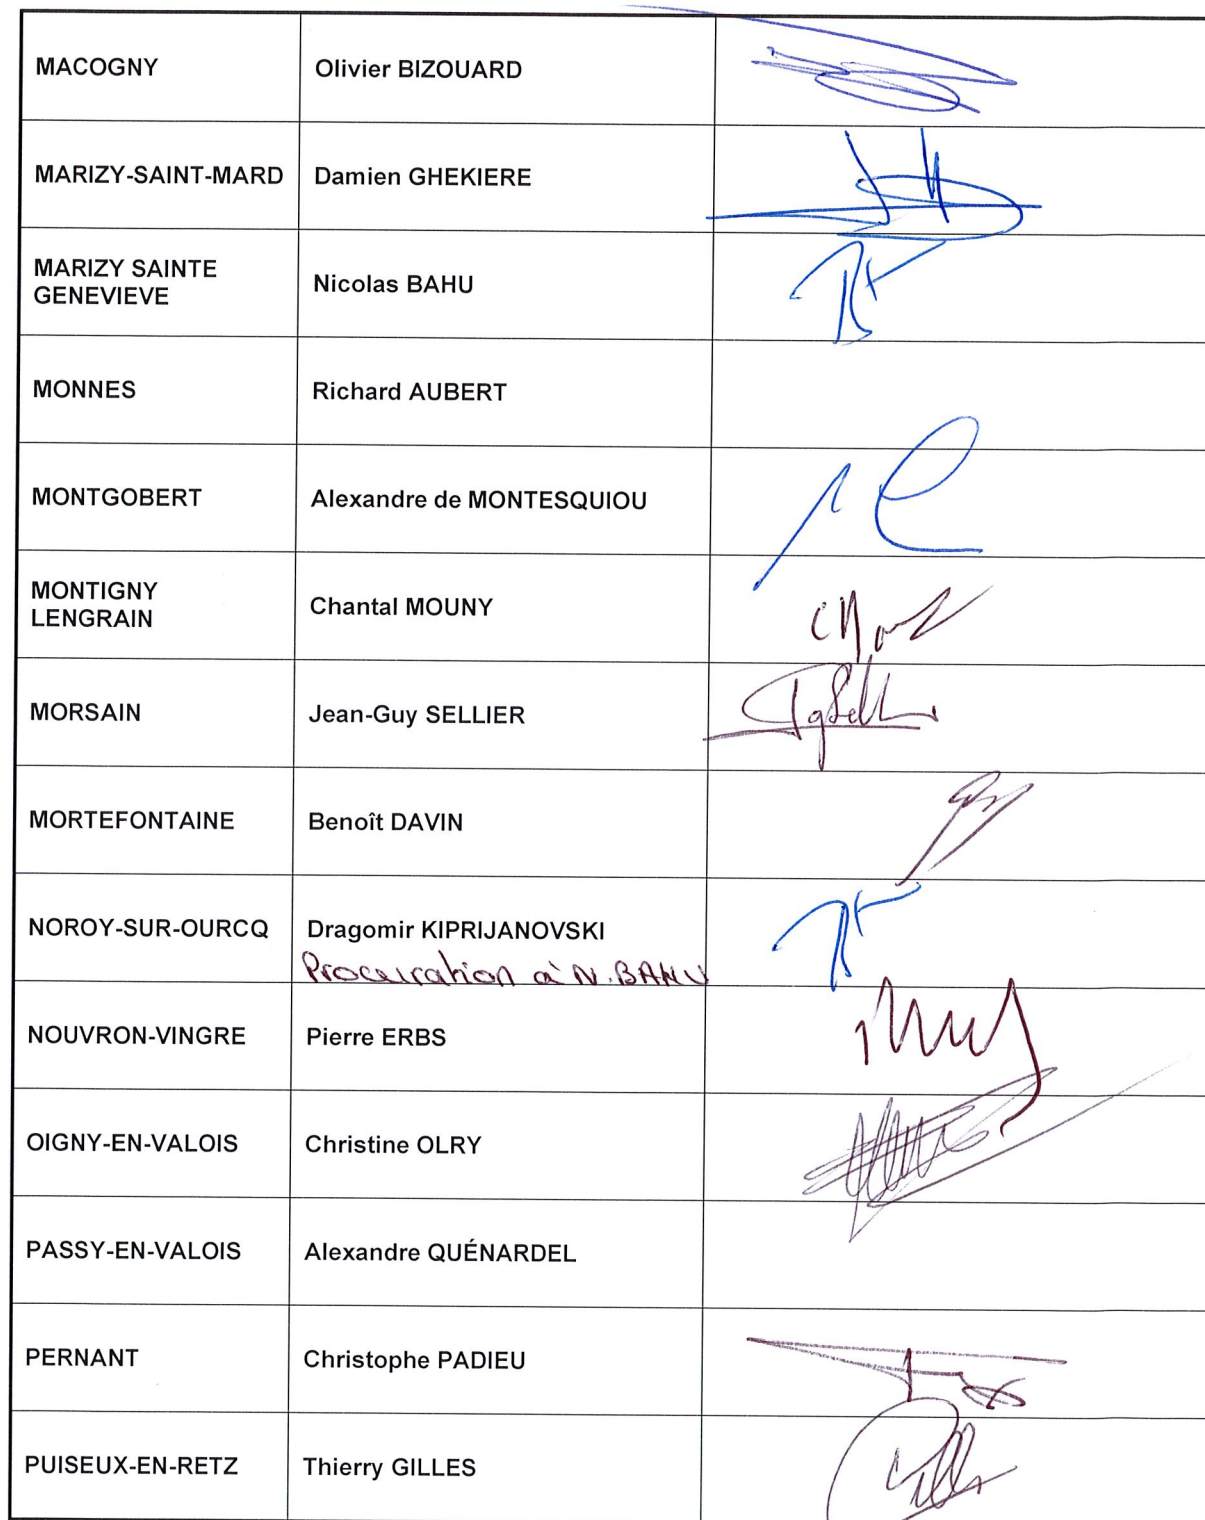 MACOGNY
Olivier BIZOUARD
MARIZY-SAINT-MARD
Damien GHEKIERE
MARIZY SAINTE
GENEVIEVE
Nicolas BAHU
MONNES
Richard AUBERT
MONTGOBERT
Alexandre de MONTESQUIOU
MONTIGNY
LENGRAIN
Chantal MOUNY
MORSAIN
Jean-Guy SELLIER
MORTEFONTAINE
Benoît DAVIN
NOROY-SUR-OURCQ
Dragomir KIPRIJANOVSKI
Procuration à N. BAHU
NOUVRON-VINGRE
Pierre ERBS
OIGNY-EN-VALOIS
Christine OLRY
PASSY-EN-VALOIS
Alexandre QUÉNARDEL
PERNANT
Christophe PADIEU
PUISEUX-EN-RETZ
Thierry GILLES